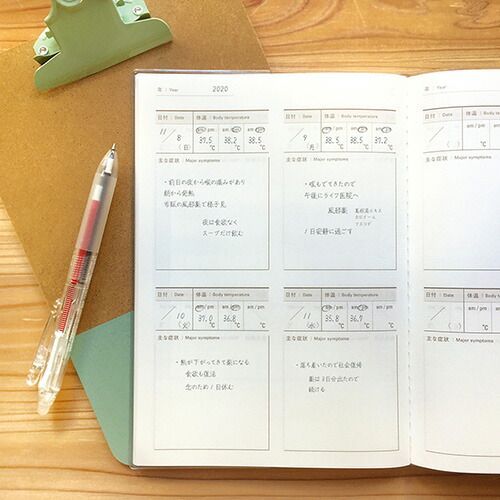 年 | Year 2020
日付 | Date 体温 | Body temperature
11/8 (日) am / pm 37.5 ℃ am / pm 38.2 ℃ am / pm 38.5 ℃
主な症状 | Major symptoms
・前日の夜から喉の痛みがあり
朝から発熱
市販の風邪薬で様子見
夜は食欲なく
スープだけ飲む
日付 | Date 体温 | Body temperature
/9 (月) am / pm 38.5 ℃ am / pm 38.5 ℃ am / pm 37.2 ℃
主な症状 | Major symptoms
・咳もでてきたので
午後にライフ医院へ
風邪薬
1日安静に過ごす
日付 | Date 体温 | Body temperature
/10 (火) am / pm 37.0 ℃ am / pm 36.8 ℃ am / pm ℃
主な症状 | Major symptoms
・熱が下がってきて楽になる
食欲も復活
念のため1日休む
日付 | Date 体温 | Body temperature
/11 (水) am / pm 35.8 ℃ am / pm 36.7 ℃ am / pm ℃
主な症状 | Major symptoms
・落ち着いたので社会復帰
薬は3日分出たので
続ける
年 | Year
日付 | Date 体温
am / pm
主な症状 | Major symptoms
日付 | Date 体温
am / pm
主な症状 | Major symptoms